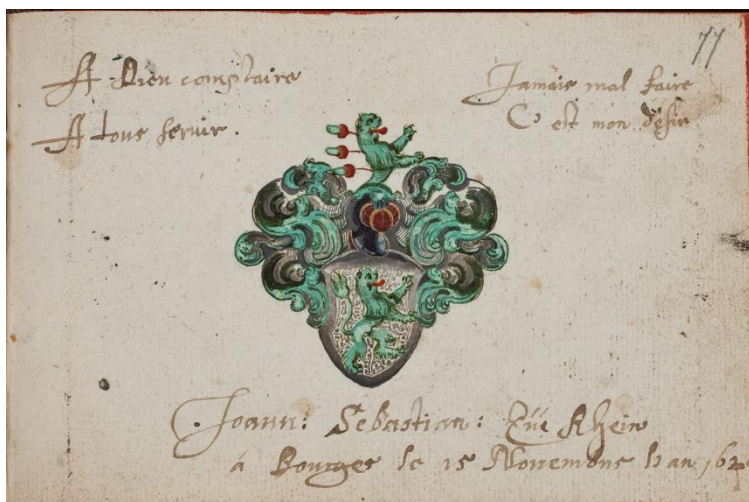 77
A Dieu complaire
A tous servir.
Jamais mal faire
C'est mon désir
Joann: Sebastian: Zũe Rhein
à Bourges le 15 Novembre l'an